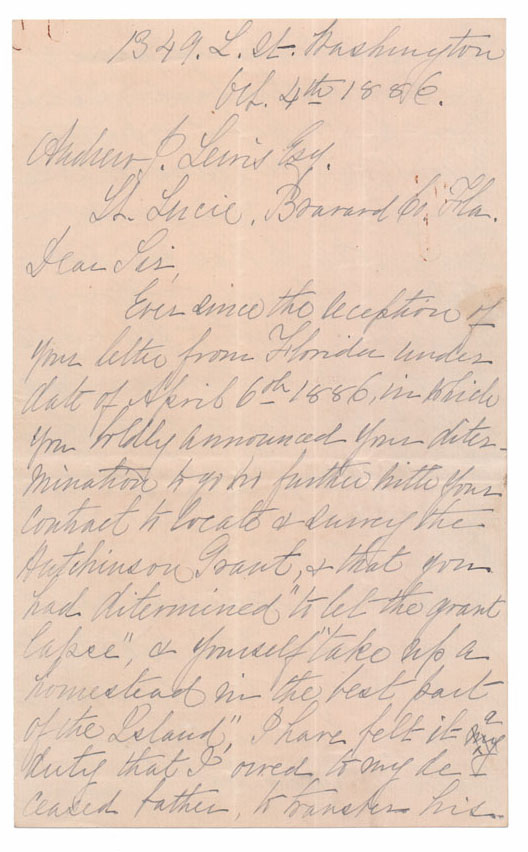 1349. L. St. Washington
Oct. 4th 1886.
Andrew J. Lewis Esq.
St. Lucie, Bravard Co, Fla.
Dear Sir,
Ever since the reception of
your letter from Florida under
date of April 6th 1886, in which
you boldly announced your deter-
mination to go no further with your
contract to locate & survey the
Hutchinson Grant, & that you
had ditermined "to let the grant
lapse", & yourself "take up a
homestead in the best part
of the Island" I have felt it a
duty that I owed to my de-
ceased father, to transfer his